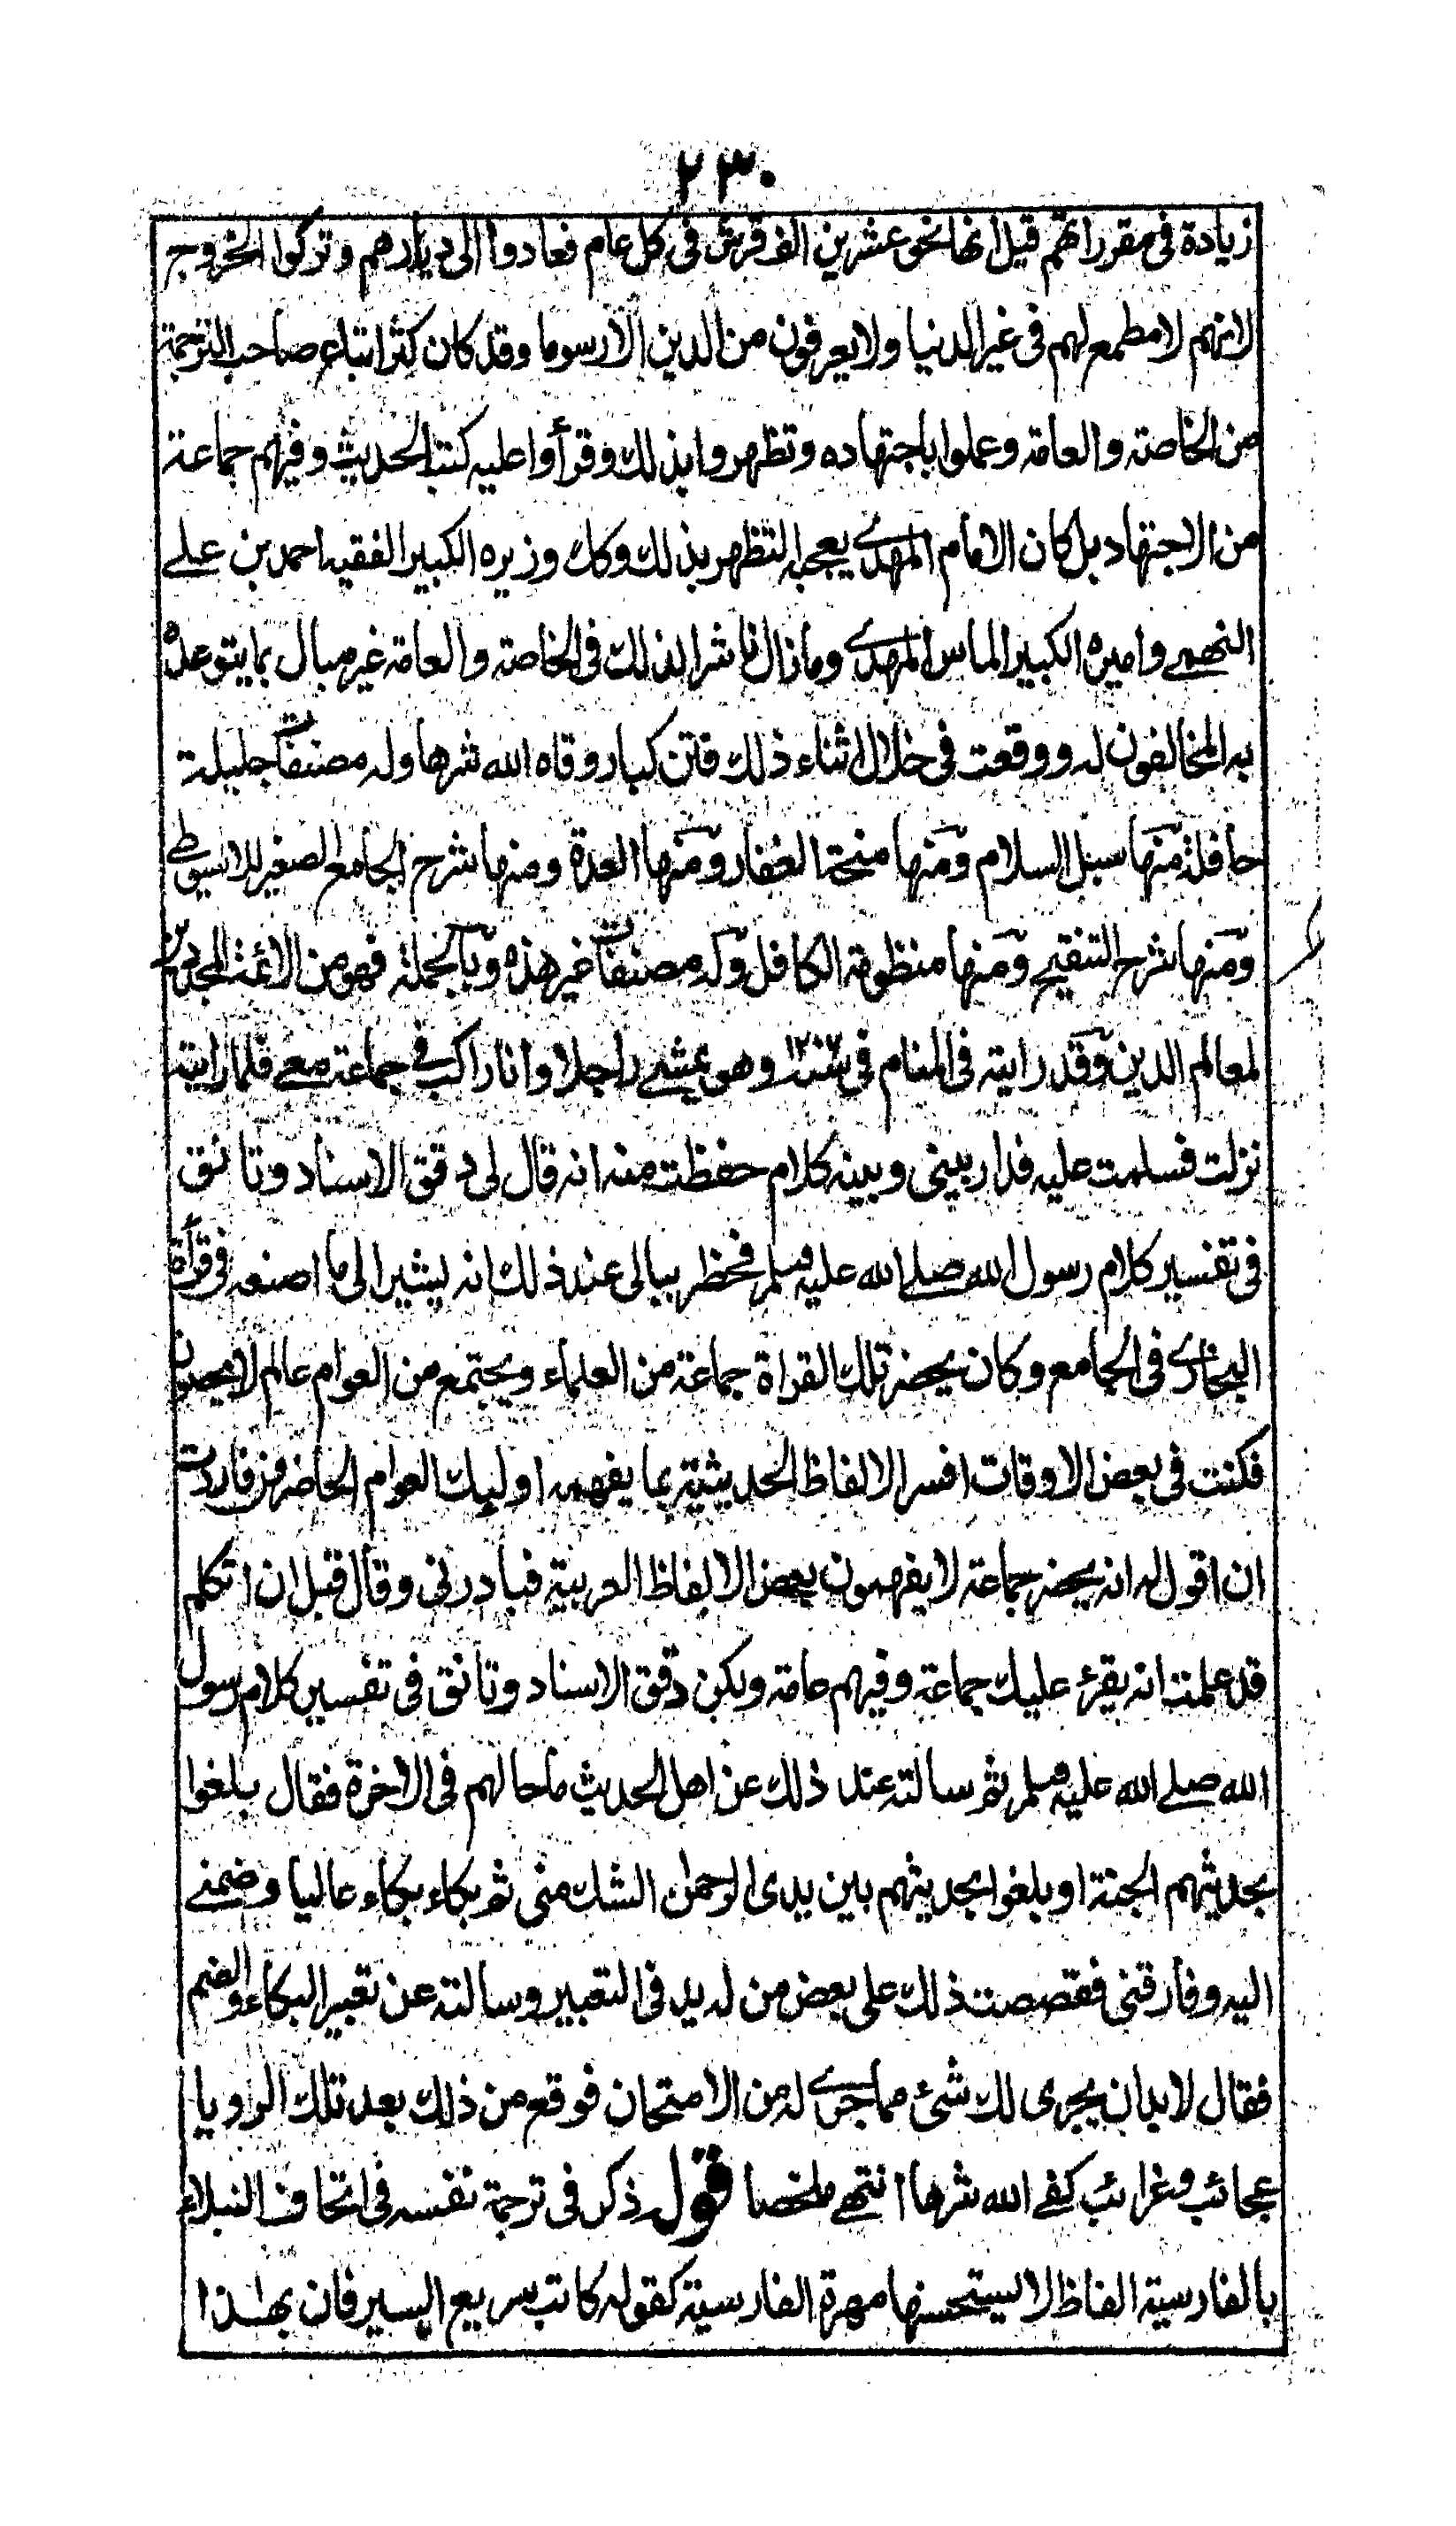 ٢٣٠
زيادة في مقرراتهم قيل انها نحو عشرين الف قرش في كل عام فعادوا الى ديارهم وتركوا الخروج
لانهم لا مطمع لهم في غير الدنيا ولا يعرفون من الدين الا رسوما وقد كان كثر اتباع صاحب الترجمة
من الخاصة والعامة وعملوا باجتهاده وتظهروا بذلك وقرأوا عليه كتب الحديث وفيهم جماعة
من الاجتهاد بل كان الامام المهدي يعجبه التظهر بذلك وكك وزيره الكبير الفقيه احمد بن علے
النهمے واميره الكبير الماس المهدے وما زال ناشرا لذلك في الخاصة والعامة غير مبال بما يتوعده
به المخالفون له ووقعت في خلال اثناء ذلك فتن كبار وقاه الله شرها وله مصنفات جليلة
حافلة منها سبل السلام ومنها منحة الغفار ومنها العدة ومنها شرح الجامع الصغير للاسيوطے
ومنها شرح التنقيح ومنها منظومة الكافل وله مصنفات غير هذه وبالجملة فهو من الائمة المجددين
لمعالم الدين وقد رايته في المنام في سنة ١٢٠٦ وهو يمشے راجلا وانا راكب فے جماعة معے فلما رايته
نزلت فسلمت عليه فدار بيني وبينه كلام حفظت منه انه قال لي دقق الاسناد وتانق
في تفسير كلام رسول الله صلے الله عليه وسلم فخطر ببالى عند ذلك انه يشير الى ما اصنعه في قرأة
البخارے في الجامع وكان يحضر تلك القراة جماعة من العلماء ويجتمع من العوام عالم لا يحصون
فكنت في بعض الاوقات افسر الالفاظ الحديثية بما يفهمه اولئك العوام الحاضرون فاردت
ان اقول له انه يحضر جماعة لا يفهمون بعض الالفاظ العربية فبادرني وقال قبل ان اتكلم
قد علمت انه يقرئ عليك جماعة وفيهم عامة ولكن دقق الاسناد وتانق في تفسير كلام رسول
الله صلے الله عليه وسلم ثم سالته عند ذلك عن اهل الحديث ما حالهم في الاخرة فقال بلغوا
بحديثهم الجنة او بلغوا بحديثهم بين يدى الرحمان الشك مني ثم بكاء بكاء عاليا وضمنے
اليه وفارقني فقصصت ذلك على بعض من له يد في التعبير وسالته عن تعبير البكاء والضم
فقال لا بد ان يجرى لك شئ مما جرے له من الامتحان فوقع من ذلك بعد تلك الرويا
عجائب وغرائب كفے الله شرها انتهے ملخصا قول ذكر في ترجمة نفسه في اتحاف النبلاء
بالفارسية الفاظ لا يستحسنها مهرة الفارسية كقوله كاتب سريع السير فان بهذا